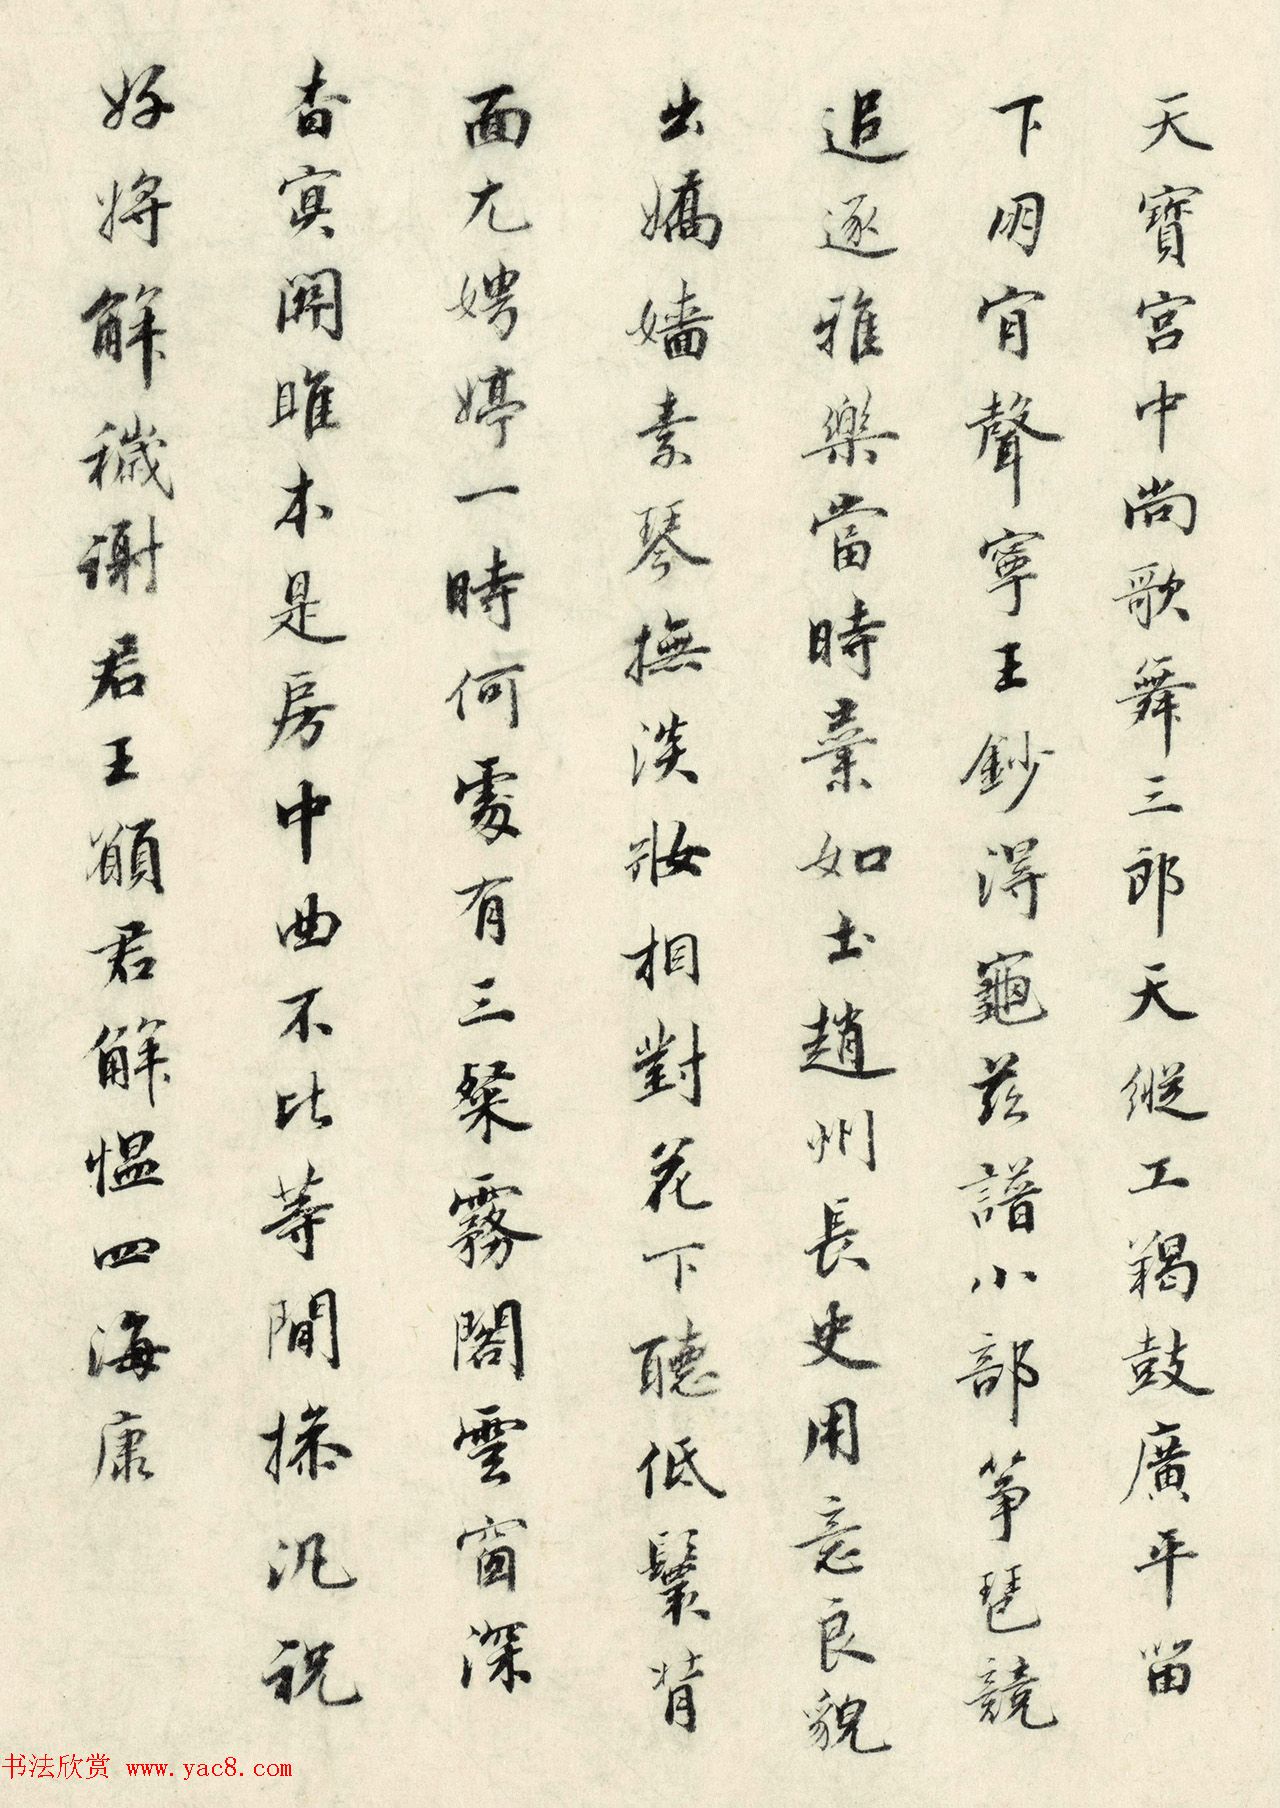 天寶宮中尚歌舞三郎天縱工羯鼓廣平留
下明宵聲寧王鈔得龜茲譜小部箏琶競
追逐雅樂當時棄如土趙州長史用意良貌
出嬌嬙素琴撫淡妝相對花下聽低鬟背
面尤娉婷一時何處有三粲霧閣雲窗深
杳冥關雎本是房中曲不比等閒操汎祝
好將解穢謝君王願君解慍四海康
书法欣赏 www.yac8.com